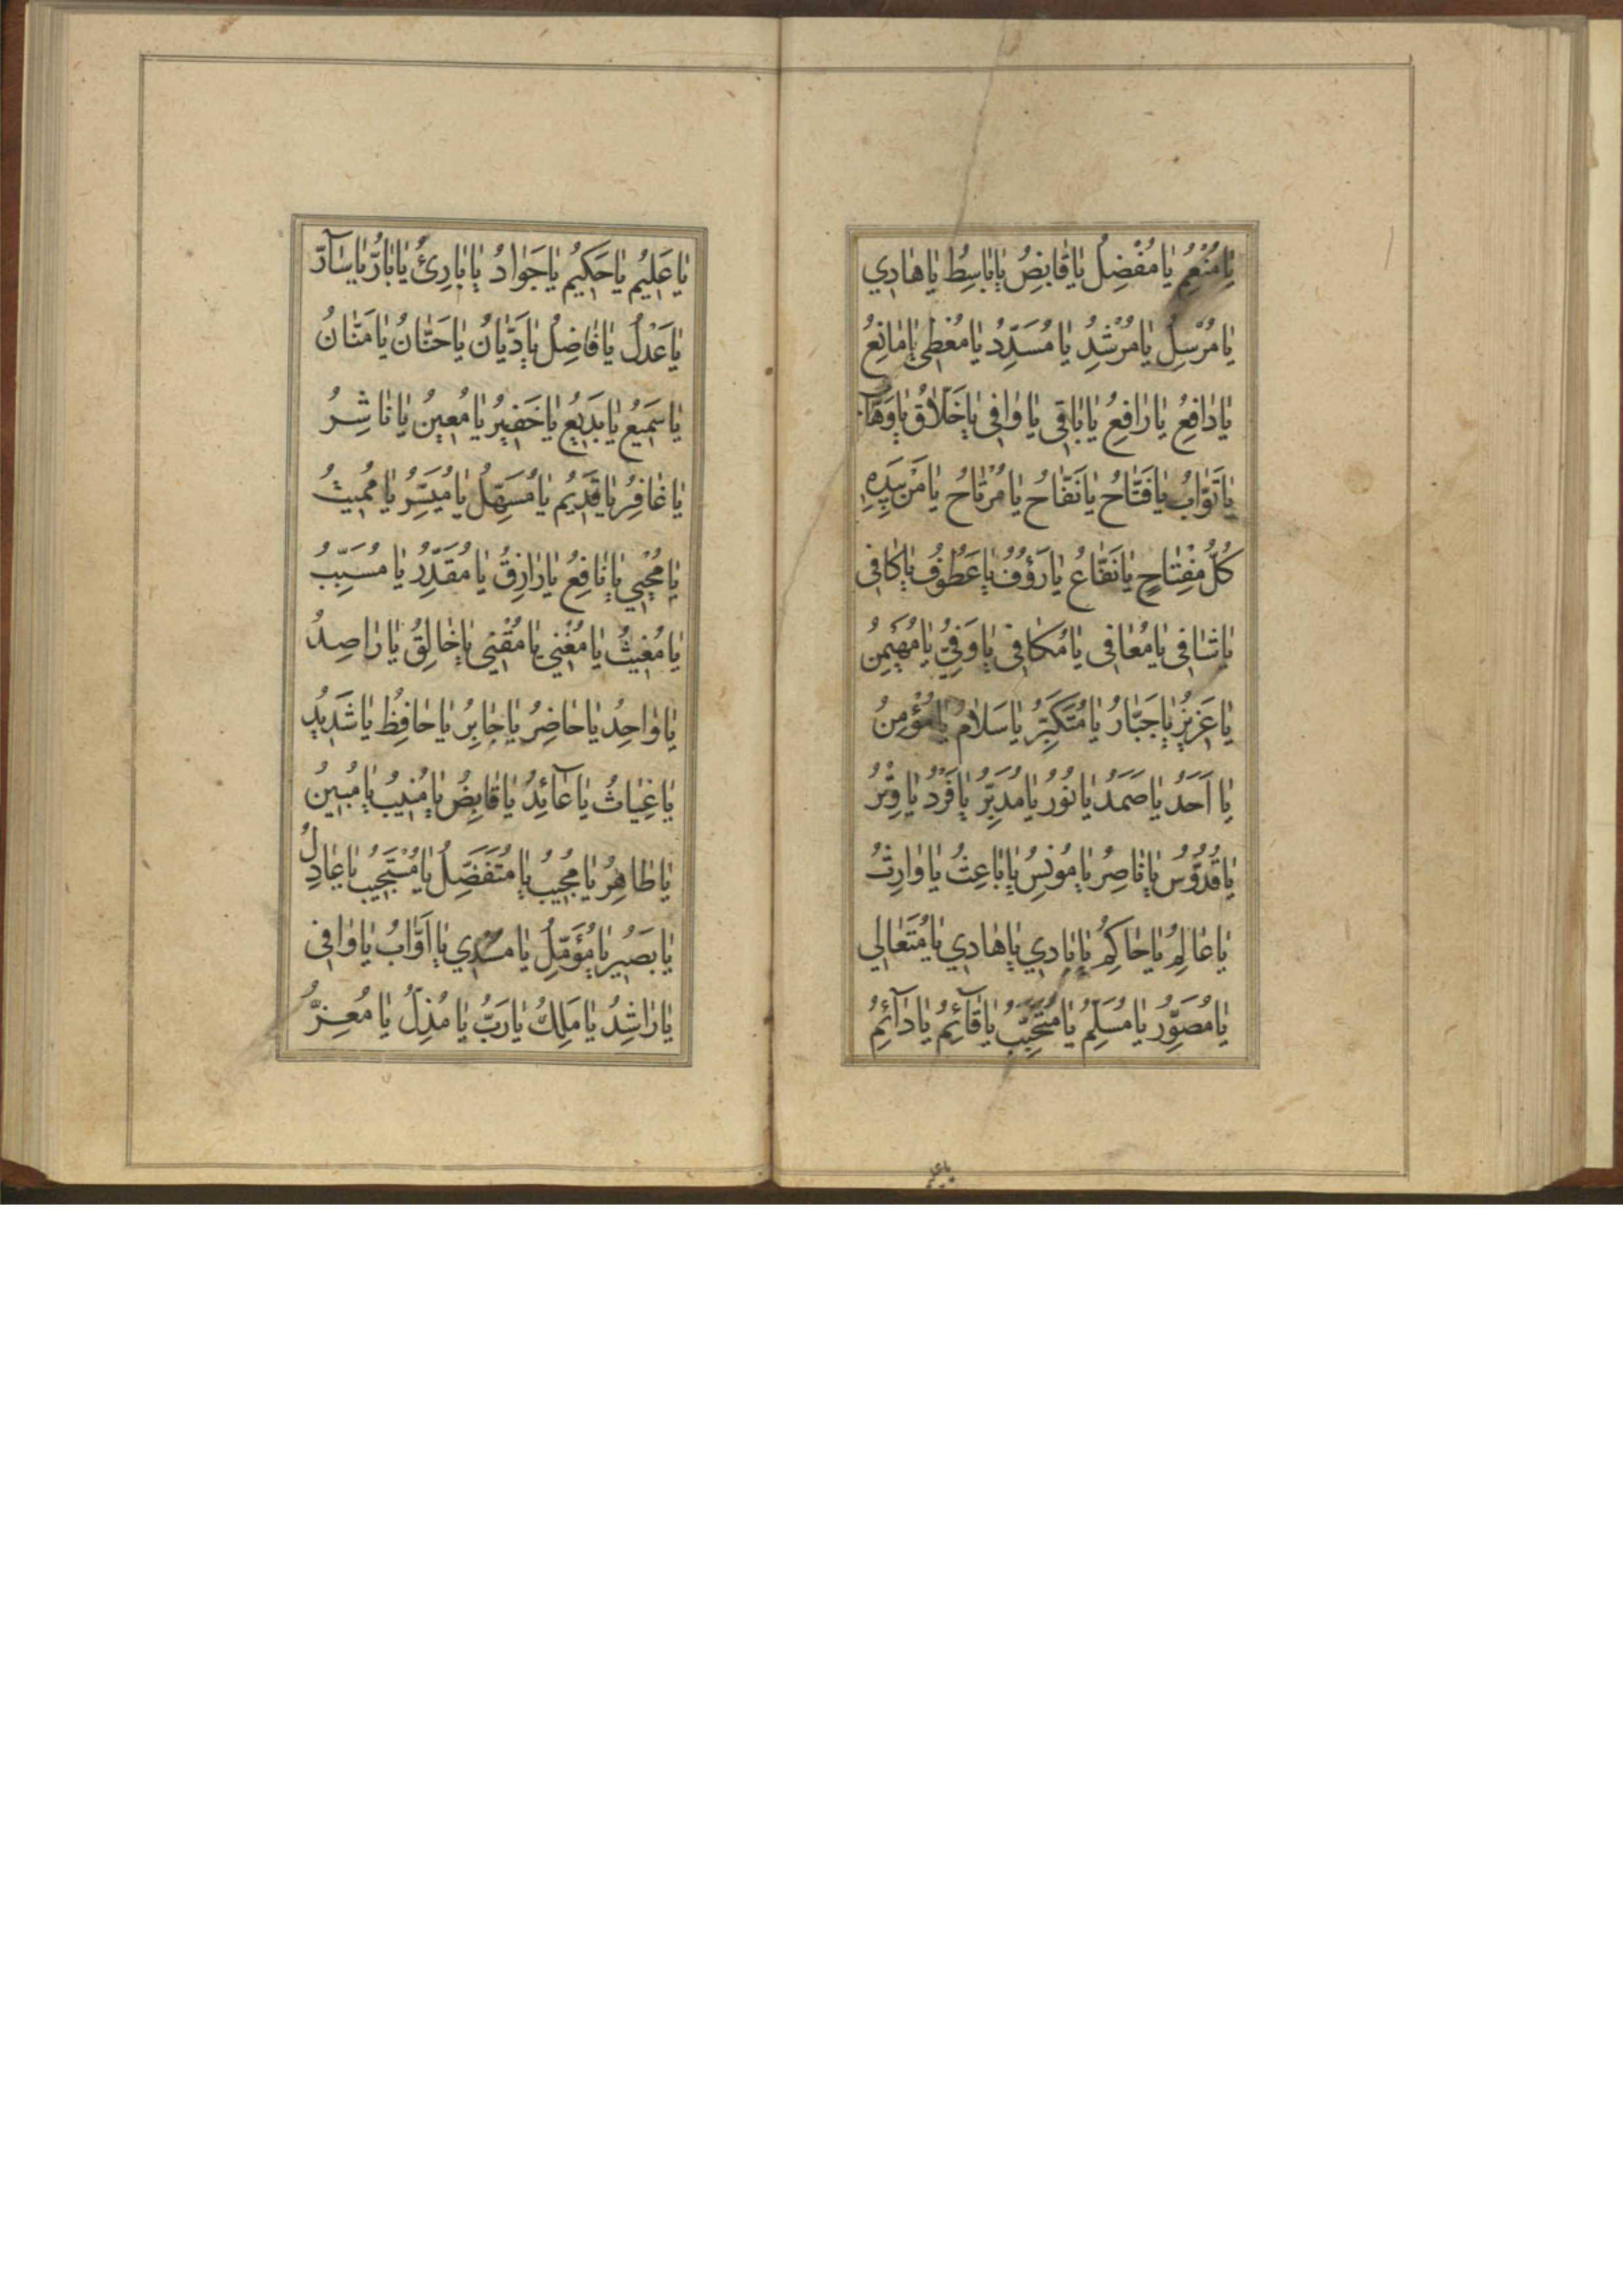 يَا مُنْعِمُ يَا مُفْضِلُ يَا قَابِضُ يَا بَاسِطُ يَا هَادِي
يَا مُرْسِلُ يَا مُرْشِدُ يَا مُسَدِّدُ يَا مُعْطِي يَا مَانِعُ
يَا دَافِعُ يَا رَافِعُ يَا بَاقِي يَا وَافِي يَا خَلَّاقُ يَا وَهَّابُ
يَا تَوَّابُ يَا فَتَّاحُ يَا نَفَّاحُ يَا مُرْتَاحُ يَا مَنْ بِيَدِهِ
كُلُّ مِفْتَاحٍ يَا نَفَّاعُ يَا رَؤُفُ يَا عَطُوفُ يَا كَافِي
يَا شَافِي يَا مُعَافِي يَا مُكَافِي يَا وَفِيُّ يَا مُهَيْمِنُ
يَا عَزِيزُ يَا جَبَّارُ يَا مُتَكَبِّرُ يَا سَلَامُ يَا مُؤْمِنُ
يَا اَحَدُ يَا صَمَدُ يَا نُورُ يَا مُدَبِّرُ يَا فَرْدُ يَا وِتْرُ
يَا قُدُّوسُ يَا نَاصِرُ يَا مُونِسُ يَا بَاعِثُ يَا وَارِثُ
يَا عَالِمُ يَا حَاكِمُ يَا بَادِي يَا هَادِي يَا مُتَعَالِي
يَا مُصَوِّرُ يَا مُسَلِّمُ يَا مُتَحَبِّبُ يَا قَآئِمُ يَا دَآئِمُ
يَا عَلِيمُ يَا حَكِيمُ يَا جَوَادُ يَا بَارِئُ يَا بَارُّ يَا سَآرُّ
يَا عَدْلُ يَا فَاضِلُ يَا دَيَّانُ يَا حَنَّانُ يَا مَنَّانُ
يَا سَمِيعُ يَا بَدِيعُ يَا خَفِيرُ يَا مُعِينُ يَا نَاشِرُ
يَا غَافِرُ يَا قَدِيمُ يَا مُسَهِّلُ يَا مُيَسِّرُ يَا مُمِيتُ
يَا مُحْيِي يَا نَافِعُ يَا رَازِقُ يَا مُقَدِّرُ يَا مُسَبِّبُ
يَا مُغِيثُ يَا مُغْنِي يَا مُقْنِي يَا خَالِقُ يَا رَاصِدُ
يَا وَاحِدُ يَا حَاضِرُ يَا جَابِرُ يَا حَافِظُ يَا شَدِيدُ
يَا غِيَاثُ يَا عَآئِدُ يَا قَابِضُ يَا مُنِيبُ يَا مُبِينُ
يَا طَاهِرُ يَا مُجِيبُ يَا مُتَفَضِّلُ يَا مُسْتَجِيبُ يَا عَادِلُ
يَا بَصِيرُ يَا مُؤَمَّلُ يَا مُسْدِي يَا اَوَّابُ يَا وَافِي
يَا رَاشِدُ يَا مَلِكُ يَا رَبُّ يَا مُذِلُّ يَا مُعِزُّ